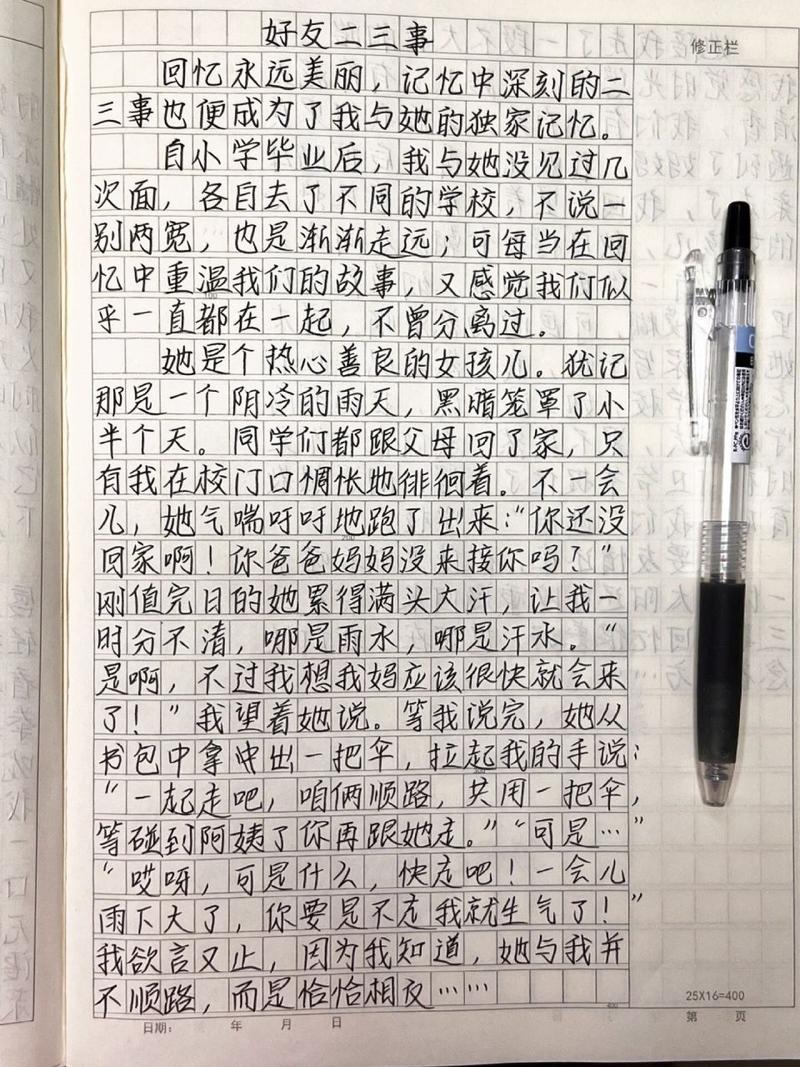 好友二三事
修正栏
回忆永远美丽，记忆中深刻的二
三事也便成为了我与她的独家记忆。
自小学毕业后，我与她没见过几
次面，各自去了不同的学校，不说一
别两宽，也是渐渐走远；可每当在回
忆中重温我们的故事，又感觉我们似
乎一直都在一起，不曾分离过。
她是个热心善良的女孩儿。犹记
那是一个阴冷的雨天，黑暗笼罩了小
半个天。同学们都跟父母回了家，只
有我在校门口惆怅地徘徊着。不一会
儿，她气喘吁吁地跑了出来：“你还没
回家啊！你爸爸妈妈没来接你吗？”
刚值完日的她累得满头大汗，让我一
时分不清，哪是雨水，哪是汗水。“
是啊，不过我想我妈应该很快就会来
了！”我望着她说。等我说完，她从
书包中拿出一把伞，拉起我的手说：
“一起走吧，咱俩顺路，共用一把伞，
等碰到阿姨了你再跟她走。”“可是…”
“哎呀，可是什么，快走吧！一会儿
雨下大了，你要是不走我就生气了！”
我欲言又止，因为我知道，她与我并
不顺路，而是恰恰相反……
25X16=400
日期： 年 月 日 第 页